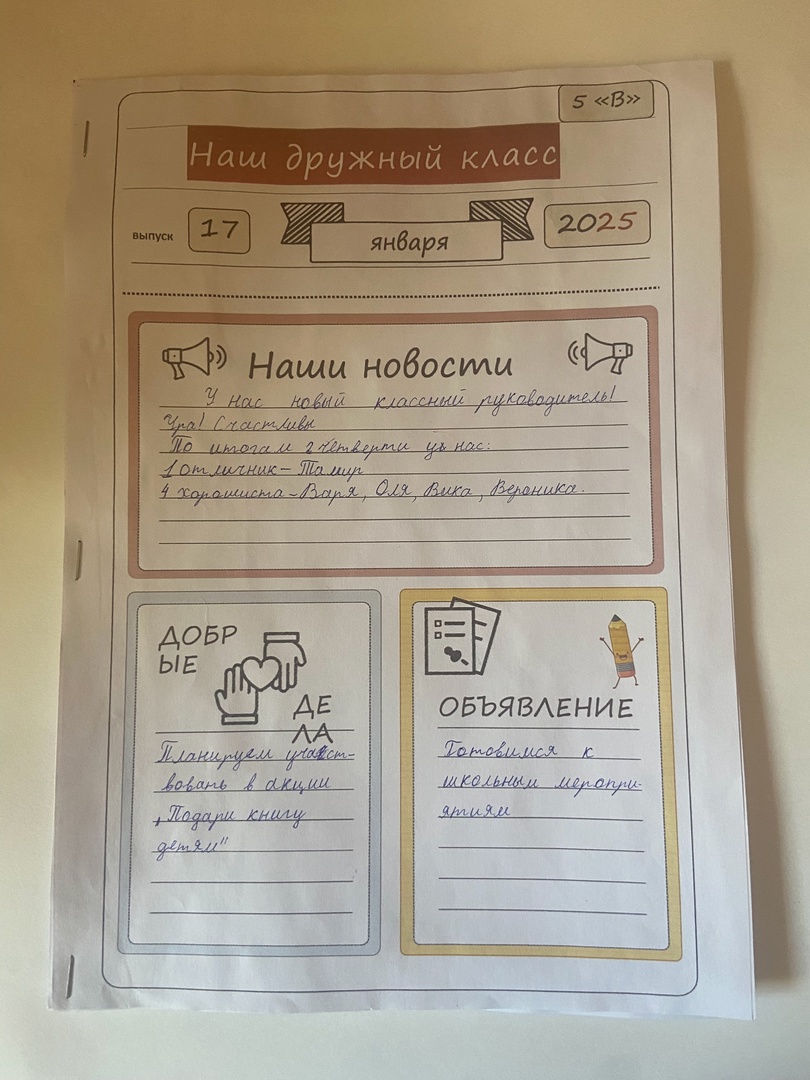 5 «В»
Наш дружный класс
выпуск
17
января
2025
Наши новости
У нас новый классный руководитель!
Ура! Счастливы
По итогам 2 четверти у нас:
1 отличник - Тамир
4 хорошиста - Варя, Оля, Вика, Вероника.
ДОБР
ЫЕ
ДЕ
ЛА
Планируем участ-
вовать в акции
„Подари книгу
детям"
ОБЪЯВЛЕНИЕ
Готовимся к
школьным меропри-
ятиям